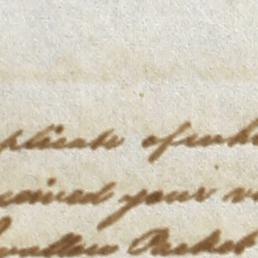 plicate of wh
ceived your
Swallow Packet